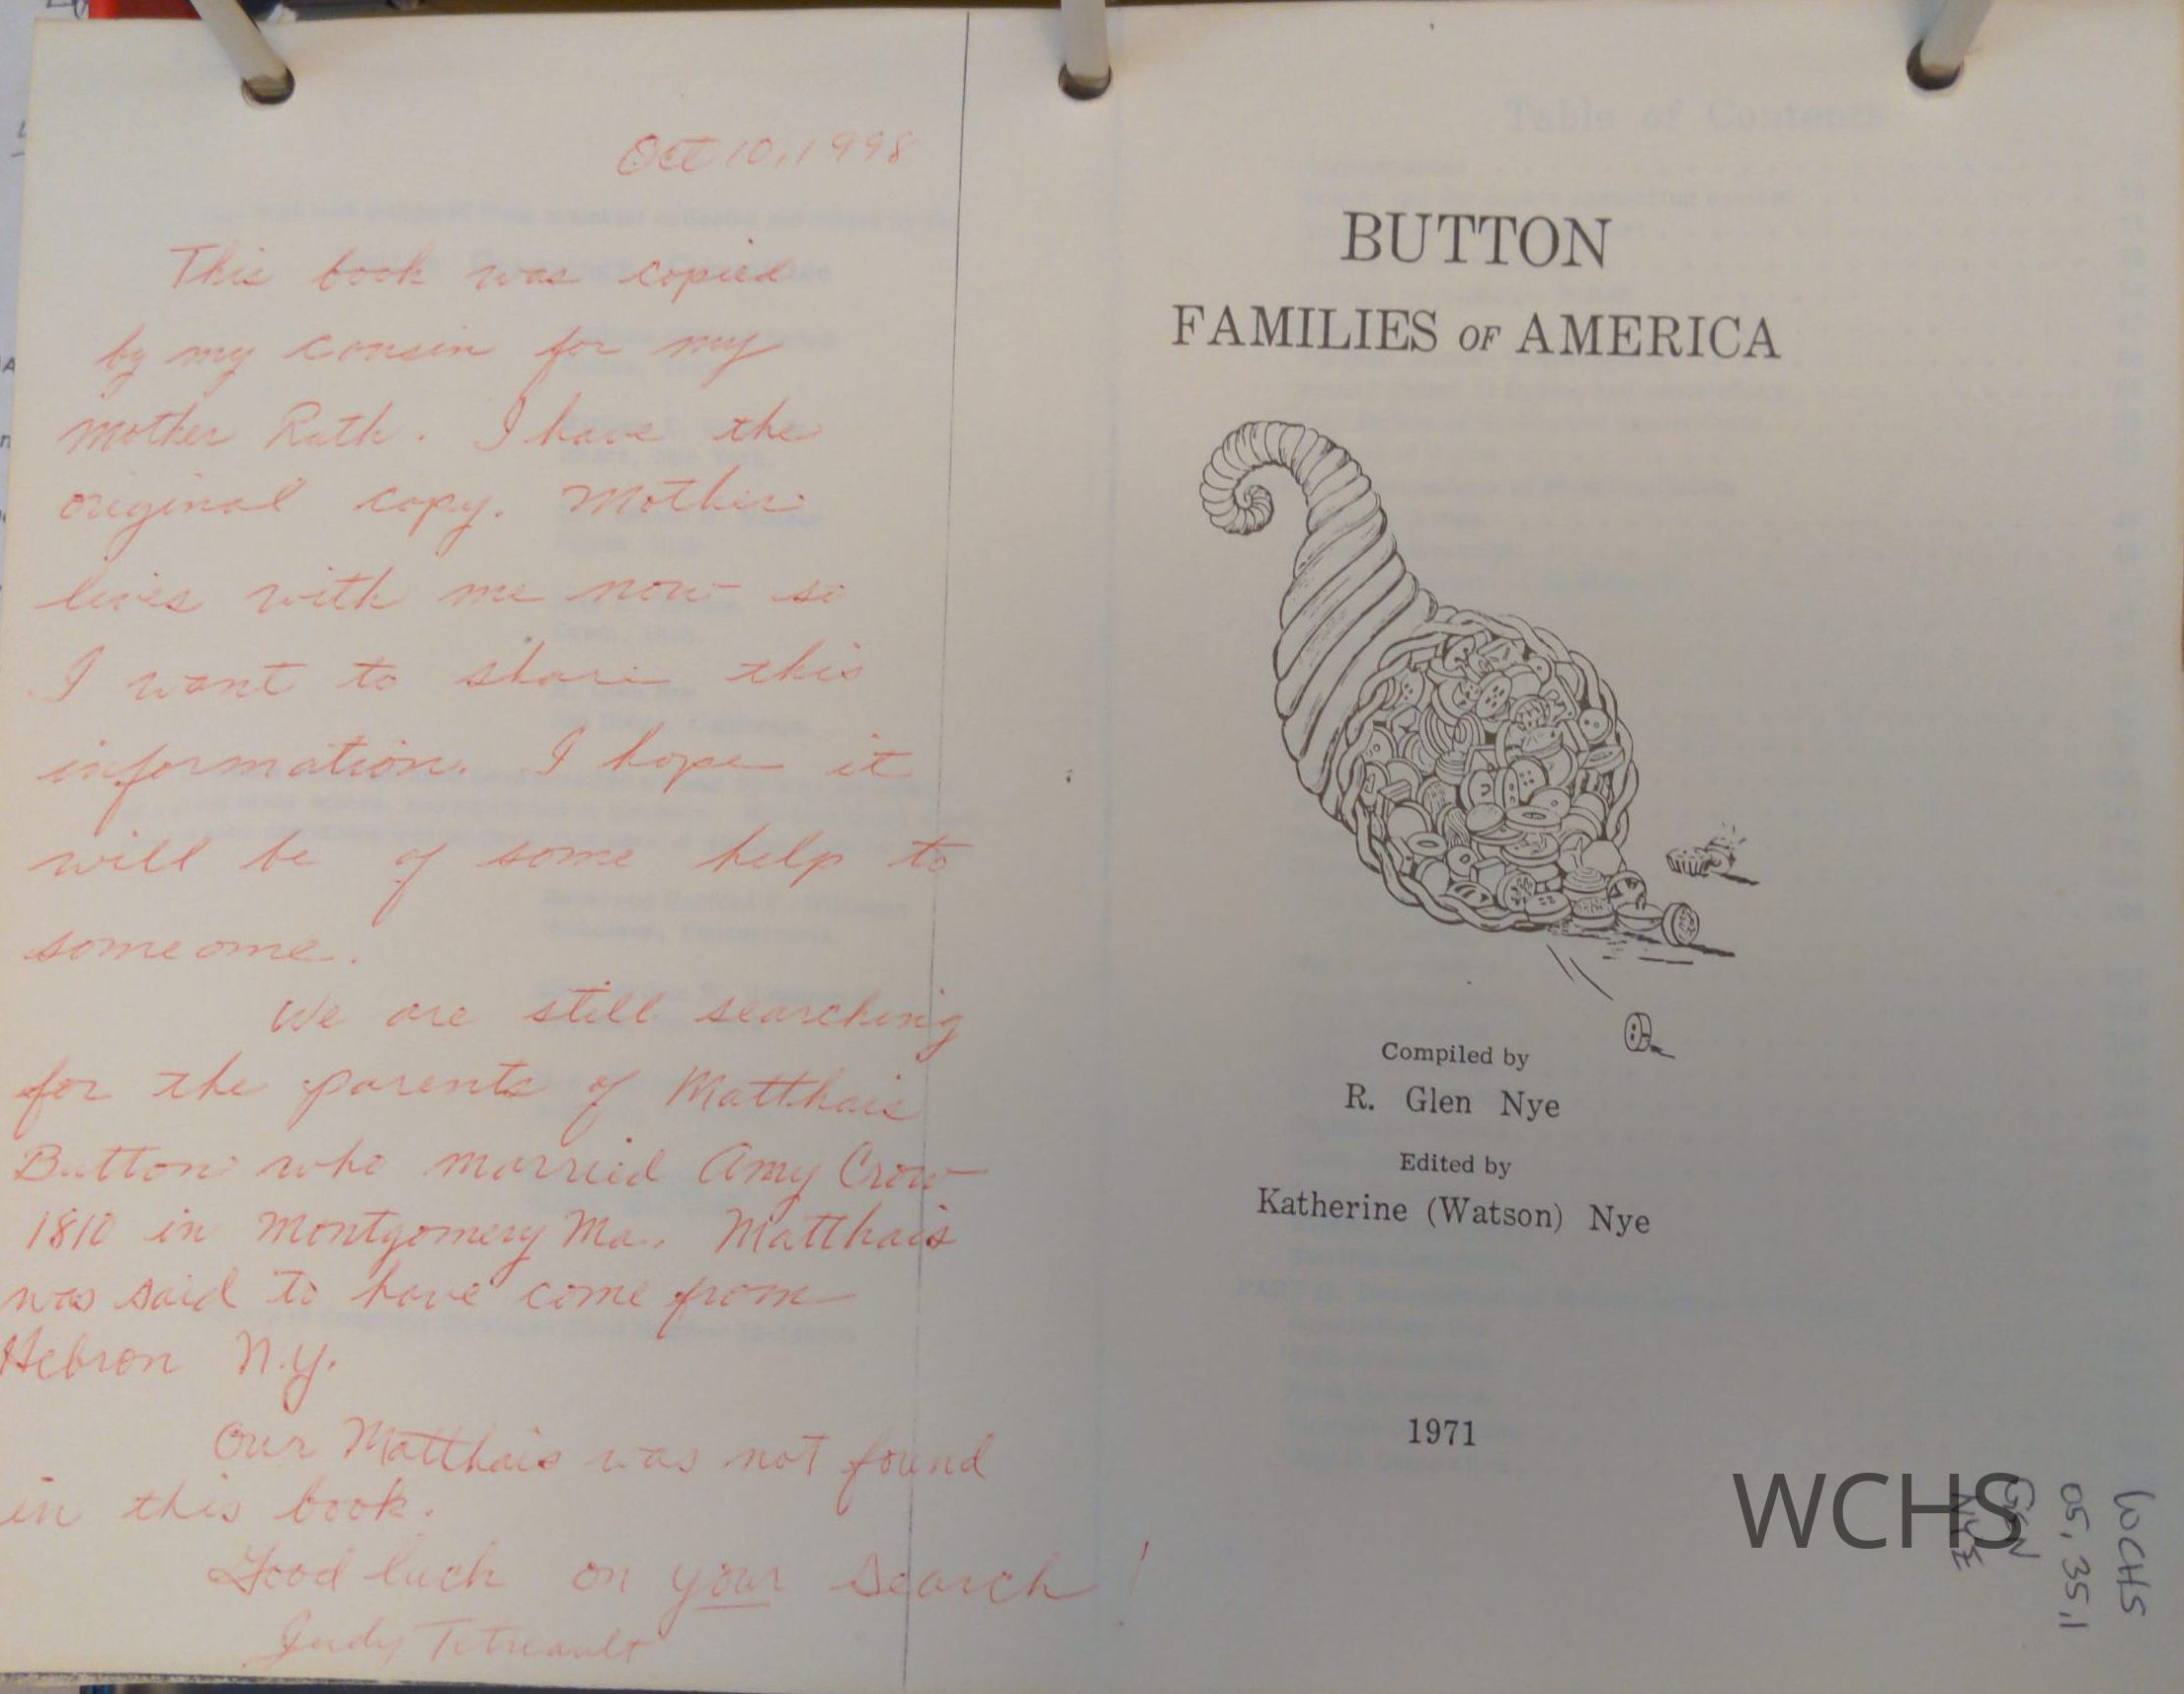 Oct 10, 1998
This book was copied
by my cousin for my
mother Ruth. I have the
original copy. Mother
lives with me now so
I want to share this
information. I hope it
will be of some help to
someone.
We are still searching
for the parents of Matthais
Button who married Amy Crow
1810 in Montgomery Ma. Matthais
was said to have come from
Hebron N.Y.
Our Matthais was not found
in this book.
Good luck on your search!
Judy Tetreault
BUTTON
FAMILIES OF AMERICA
Compiled by
R. Glen Nye
Edited by
Katherine (Watson) Nye
1971
WCHS
WCHS
05.35.1
GEN
NYE
Table of Contents